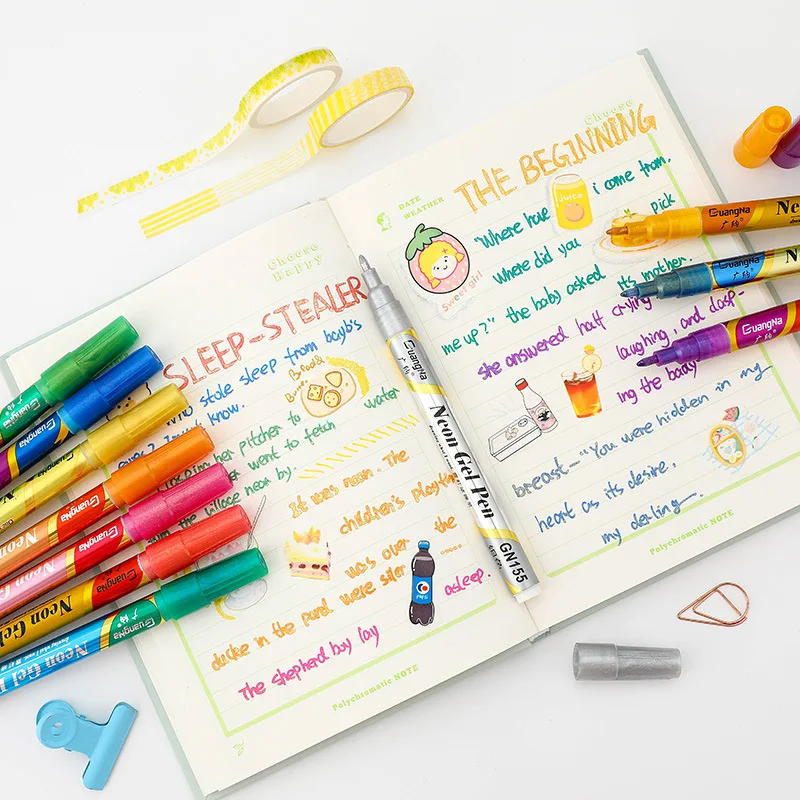 Choose
Happy
SLEEP-STEALER
Who stole sleep from bayb's
know.
her pitcher to
water
went to fetch
the village near by.
It was noon. The
children's playtim
was over
the
ducke in the pond were siler
The shepherd buy lay
asleep.
Bread &
Polychromatic NOTE
Choose
DATE
WEATHER
THE BEGINNING
"Where have
i come from.
Where did you
Pick
me up?" the baby asked
its mother.
She answered half crying
laughing, and dasp-
ing the baby
breast— "You were hidden in my
heart as its desire,
my derling
Sweet girl
JUICE
Polychromatic NOTE
GuangNa
Neon Gel Pen
GN155
GuangNa
GuangNa
GuangNa
GuangNa
GuangNa
GuangNa
GuangNa
GuangNa
Neon
Neon
Neon Ge
Neon Gel P
GuangNa
Ne
GuangNa
GuangNa